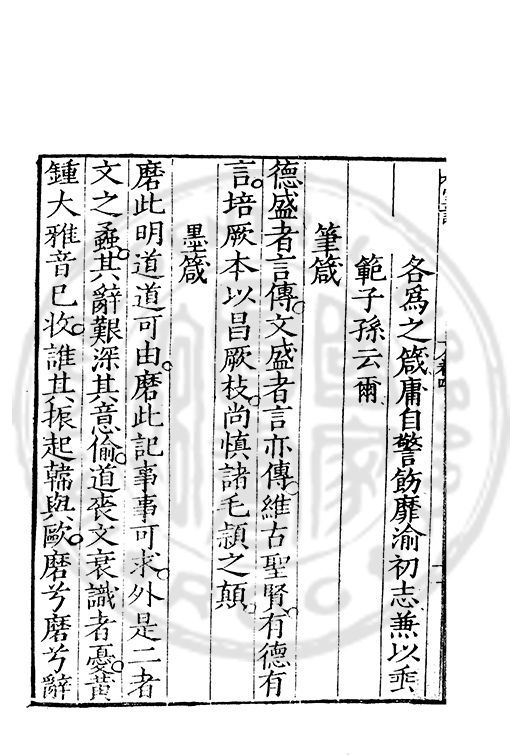 各爲之箴庸自警飭靡渝初志兼以垂
範子孫云爾
筆箴
德盛者言傳文盛者言亦傳維古聖賢有德有
言培厥本以昌厥枝尚慎諸毛頴之顛
墨箴
磨此明道道可由磨此記事事可求外是二者
文之蟊其辭艱深其意偷道喪文衰識者憂黃
鍾大雅音已收誰其振起韓與歐磨兮磨兮辭